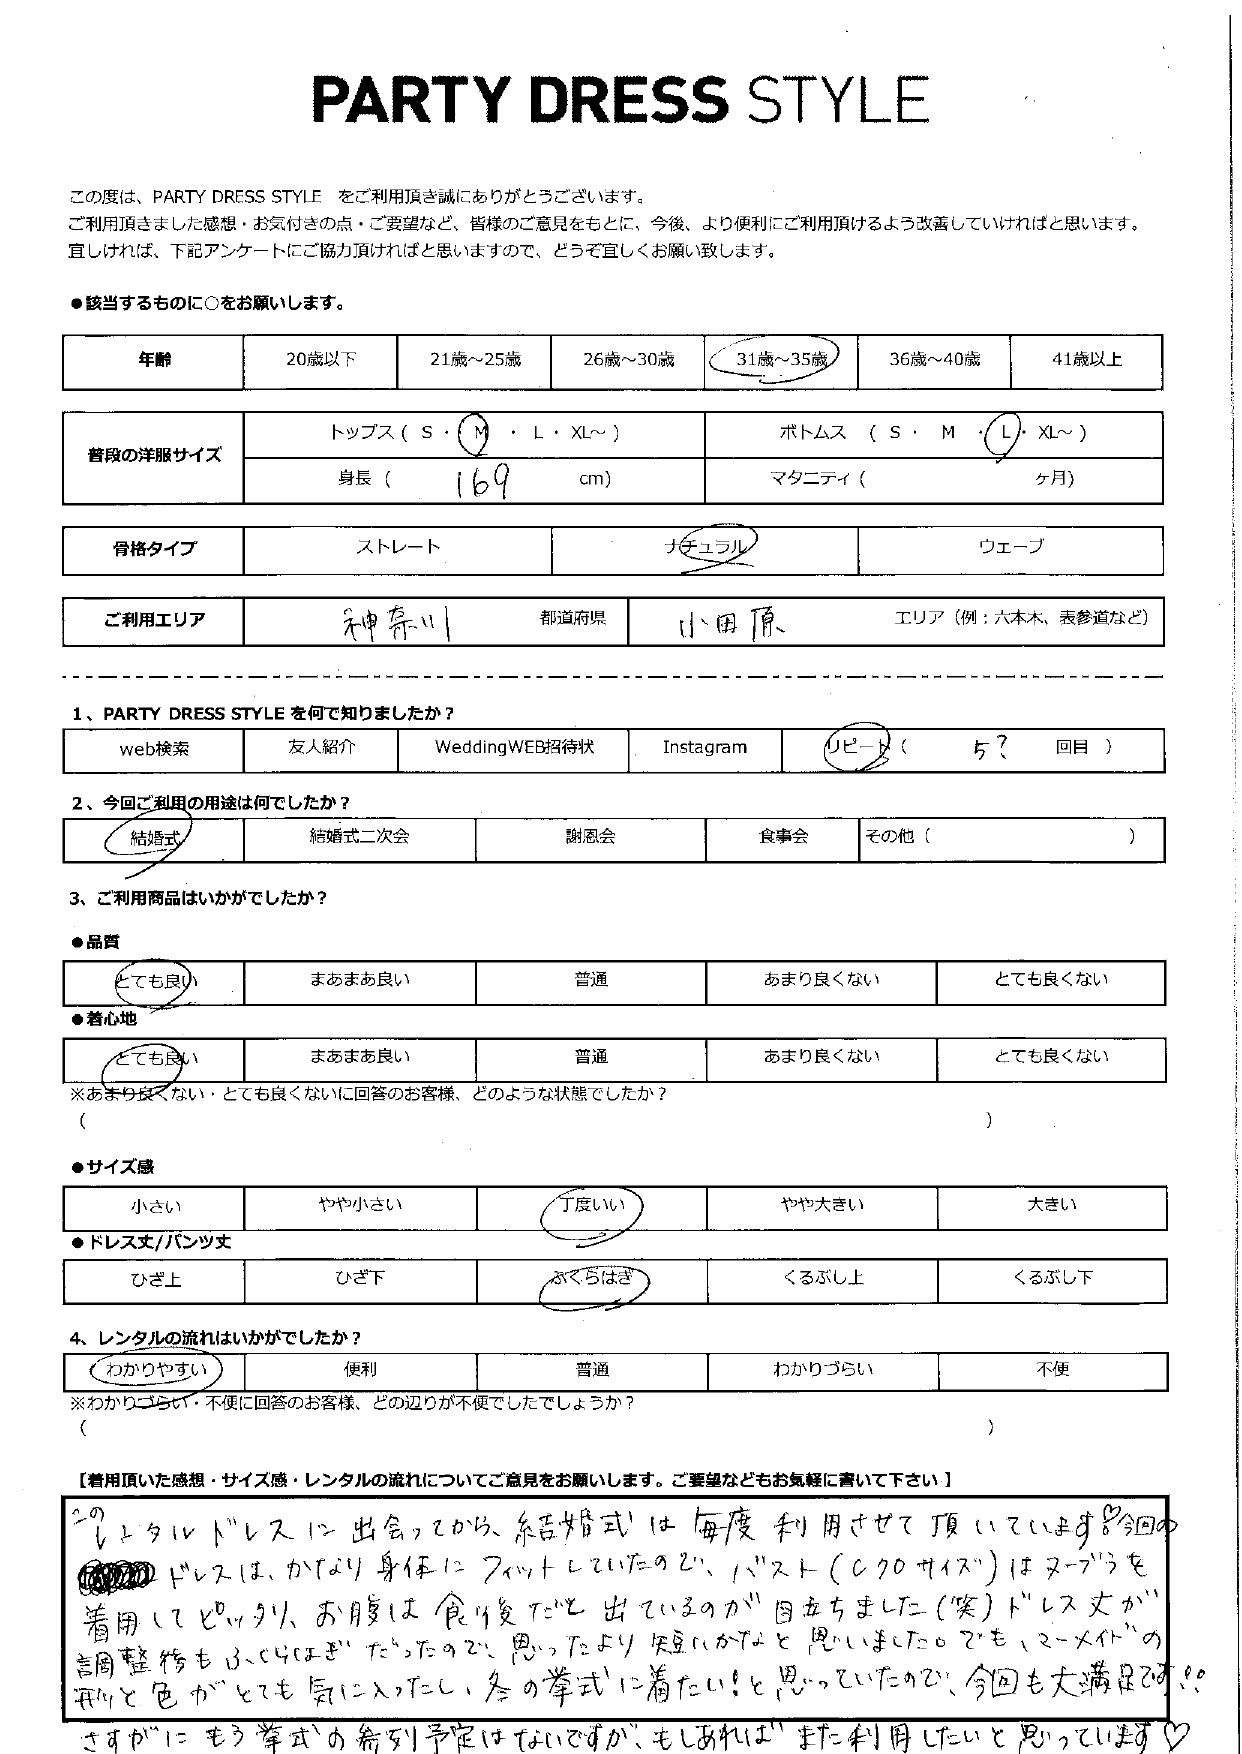 PARTY DRESS STYLE
この度は、PARTY DRESS STYLE をご利用頂き誠にありがとうございます。
ご利用頂きました感想・お気付きの点・ご要望など、皆様のご意見をもとに、今後、より便利にご利用頂けるよう改善していければと思います。
宜しければ、下記アンケートにご協力頂ければと思いますので、どうぞ宜しくお願い致します。
●該当するものに○をお願いします。
年齢 20歳以下 21歳～25歳 26歳～30歳 31歳～35歳 36歳～40歳 41歳以上
普段の洋服サイズ トップス ( S ・ M ・ L ・ XL～ ) ボトムス ( S ・ M ・ L ・ XL～ )
身長 ( 169 cm) マタニティ ( ヶ月)
骨格タイプ ストレート ナチュラル ウェーブ
ご利用エリア 神奈川 都道府県 小田原 エリア（例：六本木、表参道など）
1、PARTY DRESS STYLE を何で知りましたか？
web検索 友人紹介 WeddingWEB招待状 Instagram リピート ( 5? 回目 )
2、今回ご利用の用途は何でしたか？
結婚式 結婚式二次会 謝恩会 食事会 その他 ( )
3、ご利用商品はいかがでしたか？
●品質
とても良い まあまあ良い 普通 あまり良くない とても良くない
●着心地
とても良い まあまあ良い 普通 あまり良くない とても良くない
※あまり良くない・とても良くないに回答のお客様、どのような状態でしたか？
( )
●サイズ感
小さい やや小さい 丁度いい やや大きい 大きい
●ドレス丈/パンツ丈
ひざ上 ひざ下 ふくらはぎ くるぶし上 くるぶし下
4、レンタルの流れはいかがでしたか？
わかりやすい 便利 普通 わかりづらい 不便
※わかりづらい・不便に回答のお客様、どの辺りが不便でしたでしょうか？
( )
【着用頂いた感想・サイズ感・レンタルの流れについてご意見をお願いします。ご要望などもお気軽に書いて下さい】
このレンタルドレスに出会ってから、結婚式は毎度利用させて頂いています♡今回の
ドレスは、かなり身体にフィットしていたので、バスト(C70サイズ)はヌーブラを
着用してピッタリ、お腹は食後だと出ているのが目立ちました(笑)ドレス丈が
調整後もふくらはぎだったので、思ったより短いかなと思いました。でも、マーメイドの
形と色がとても気に入ったし、冬の挙式に着たい!と思っていたので、今回も大満足です!!
さすがにもう挙式の参列予定はないですが、もしあればまた利用したいと思っています♡